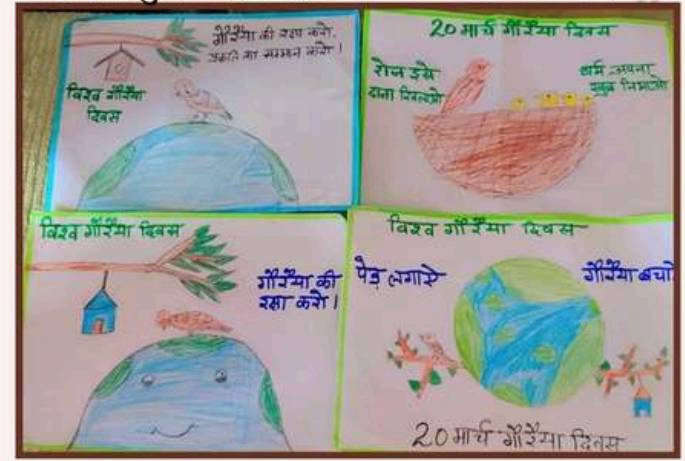 गौरैया की रक्षा करो,
प्रकृति का सम्मान करो!
विश्व गौरैया
दिवस
20 मार्च गौरैया दिवस
रोज इसे
दाना खिलाओ
धर्म अपना
खुब निभाओ
विश्व गौरैया दिवस
गौरैया की
रक्षा करो।
विश्व गौरैया दिवस
पेड़ लगाये
गौरैया बचाये
20 मार्च गौरैया दिवस